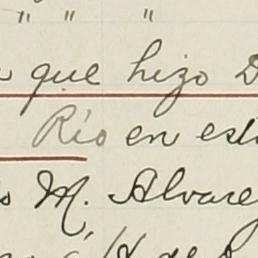 " " "
que hizo D
Río en est
M. Alvare